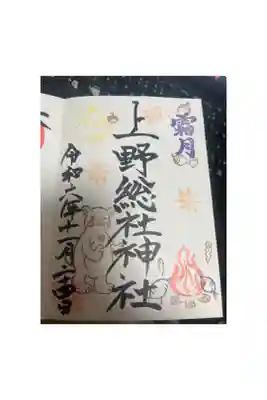 霜月
上野総社神社
令和六年十一月二十四日